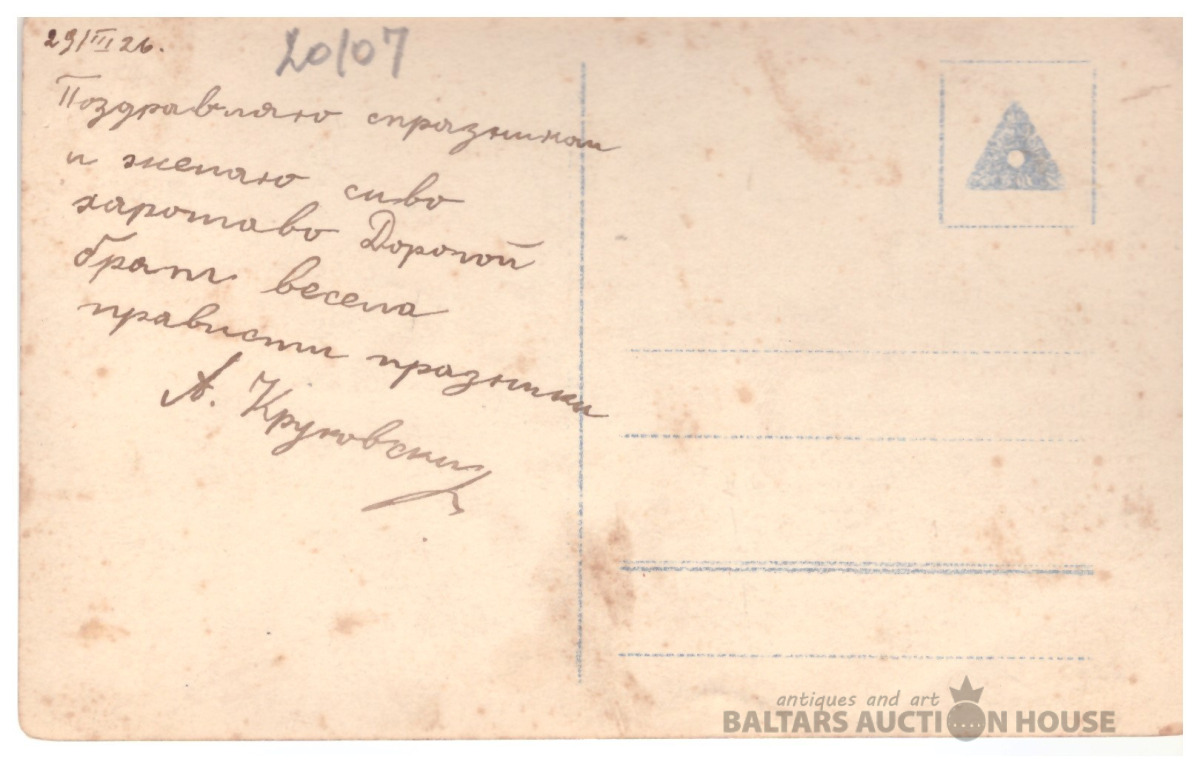 29/III 26.
20/07
Поздравляю спразником
и желаю сиво
харошаво Дорогой
брат весела
прависти празники
А. Круковски
antiques and art
BALTARS AUCTION HOUSE